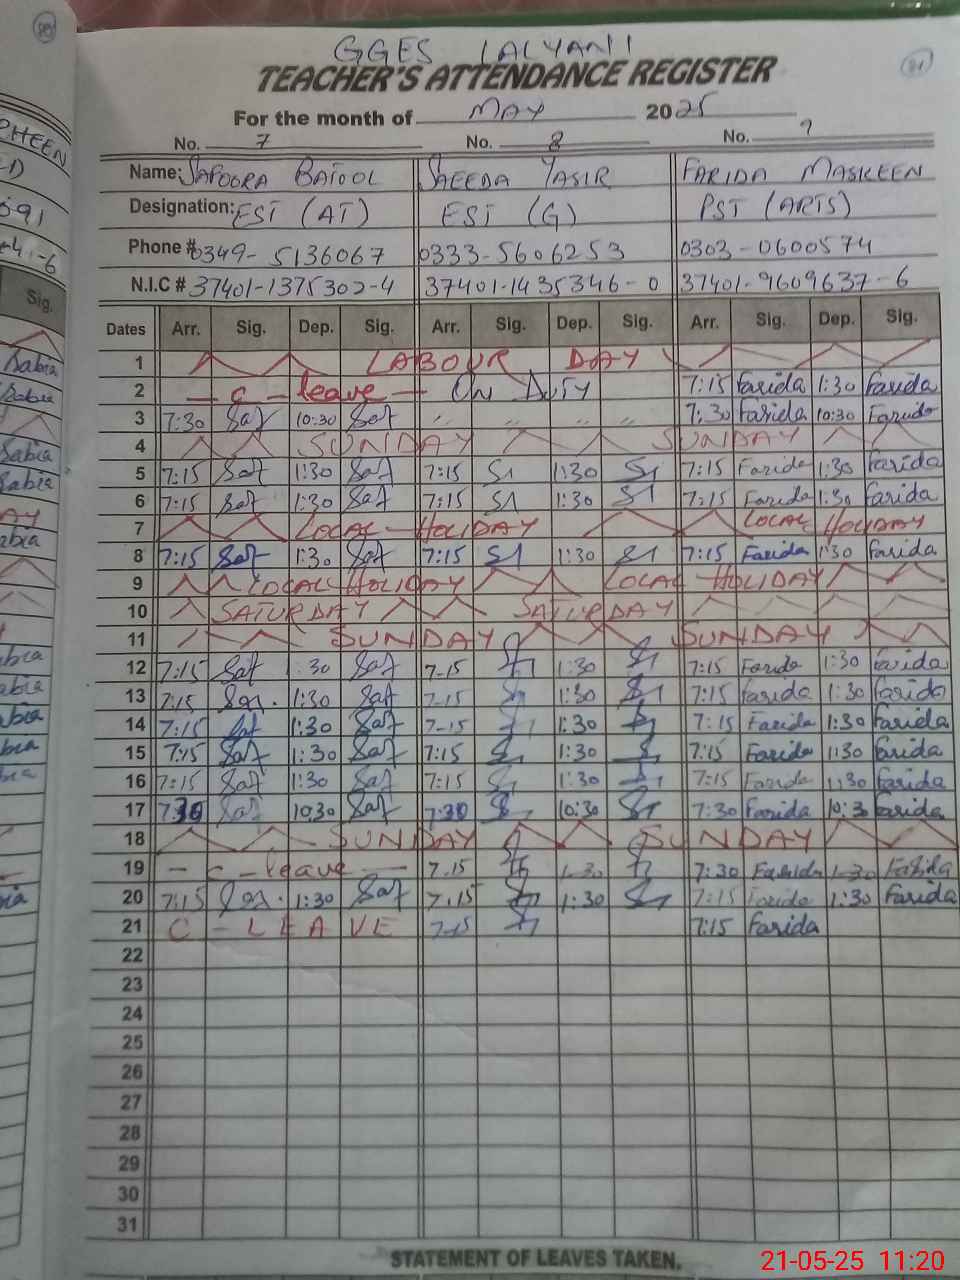 GGES LALYANI
TEACHER'S ATTENDANCE REGISTER
For the month of MAY 2025
No. 7 No. 8 No. 9
Name: SAFOORA BATOOL SAEEDA YASIR FARIDA MASKEEN
Designation: EST (AT) EST (G) PST (ARTS)
Phone # 0349-5136067 0333-5606253 0303-0600574
N.I.C # 37401-1375302-4 37401-1435346-0 37401-9609637-6
Dates Arr. Sig. Dep. Sig. Arr. Sig. Dep. Sig. Arr. Sig. Dep. Sig.
1 LABOUR DAY
2 - c - leave - On Duty 7:15 Farida 1:30 Farida
3 7:30 Saf 10:30 Saf " " " " 7:30 Farida 10:30 Farida
4 SUNDAY SUNDAY
5 7:15 Saf 1:30 Saf 7:15 1:30 7:15 Farida 1:30 Farida
6 7:15 Saf 1:30 Saf 7:15 1:30 7:15 Farida 1:30 Farida
7 LOCAL HOLIDAY LOCAL HOLIDAY
8 7:15 Saf 1:30 Saf 7:15 1:30 7:15 Farida 1:30 Farida
9 LOCAL HOLIDAY LOCAL HOLIDAY
10 SATURDAY SATURDAY
11 SUNDAY SUNDAY
12 7:15 Saf 1:30 Saf 7-15 1:30 7:15 Farida 1:30 Farida
13 7:15 Saf 1:30 Saf 7-15 1:30 7:15 Farida 1:30 Farida
14 7:15 Saf 1:30 Saf 7-15 1:30 7:15 Farida 1:30 Farida
15 7:15 Saf 1:30 Saf 7:15 1:30 7:15 Farida 1:30 Farida
16 7:15 Saf 1:30 Saf 7:15 1:30 7:15 Farida 1:30 Farida
17 7:30 Saf 10:30 Saf 7:30 10:30 7:30 Farida 10:3 Farida
18 SUNDAY SUNDAY
19 - c - leave - 7.15 1-30 7:30 Farida 1-30 Farida
20 7:15 Saf 1:30 Saf 7.15 1:30 7:15 Farida 1:30 Farida
21 C - LEAVE 7-15 7:15 Farida
22
23
24
25
26
27
28
29
30
31
STATEMENT OF LEAVES TAKEN.
21-05-25 11:20